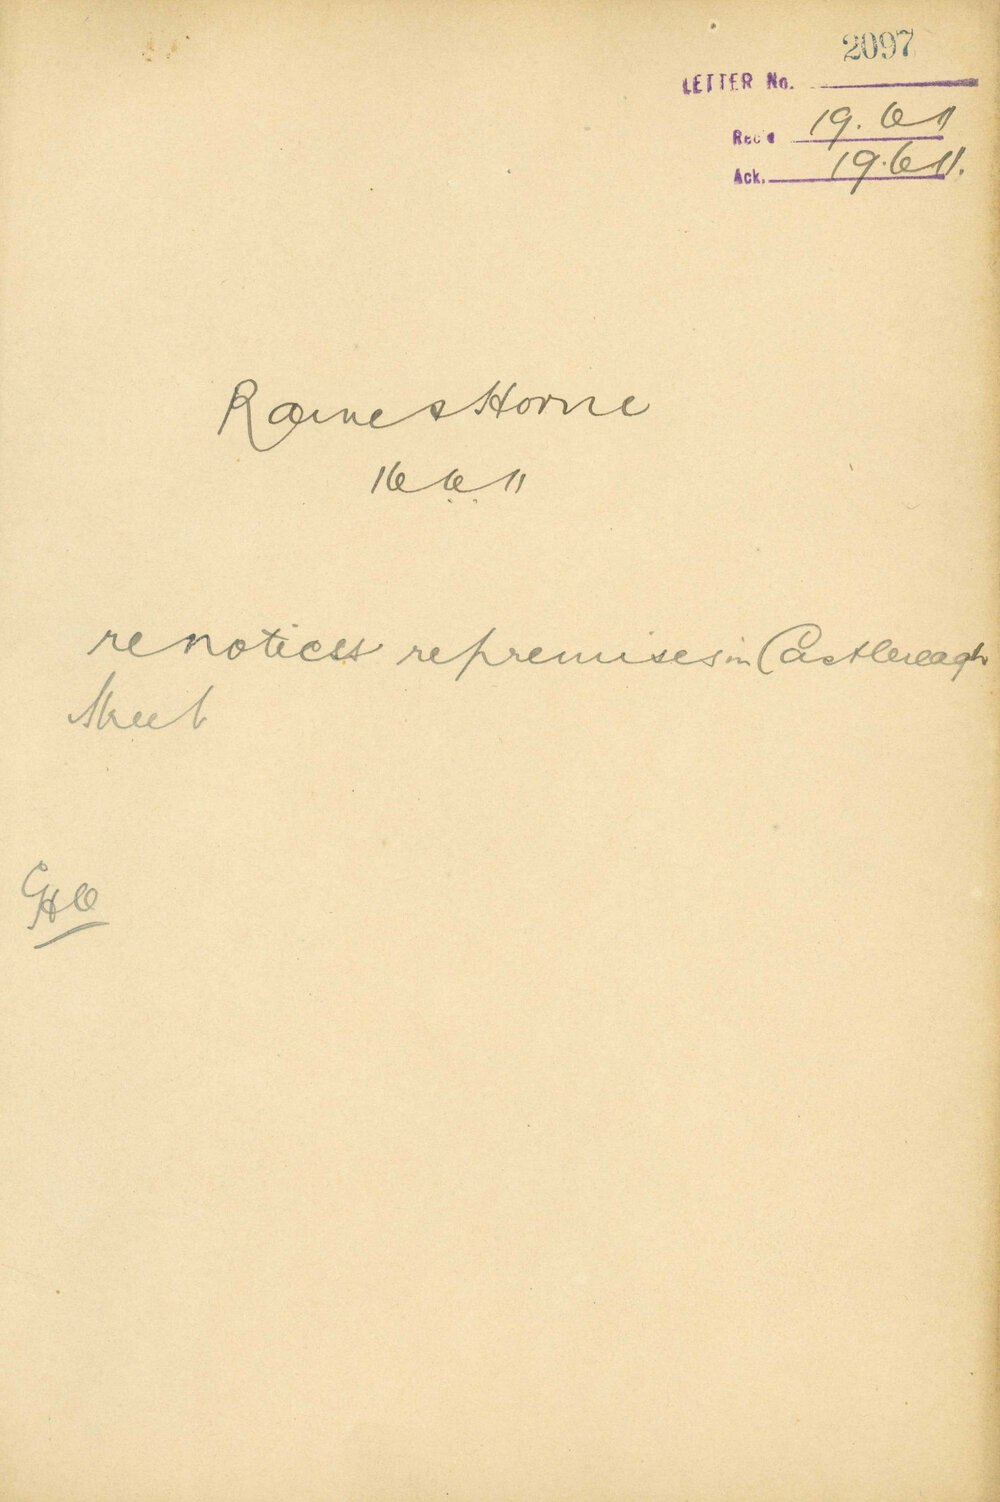 2097
LETTER No.
Rec'd 19.6 11
Ack. 19.6 11.
Raine & Horne
16 6 11
re notices re premises in Castlereagh
Street